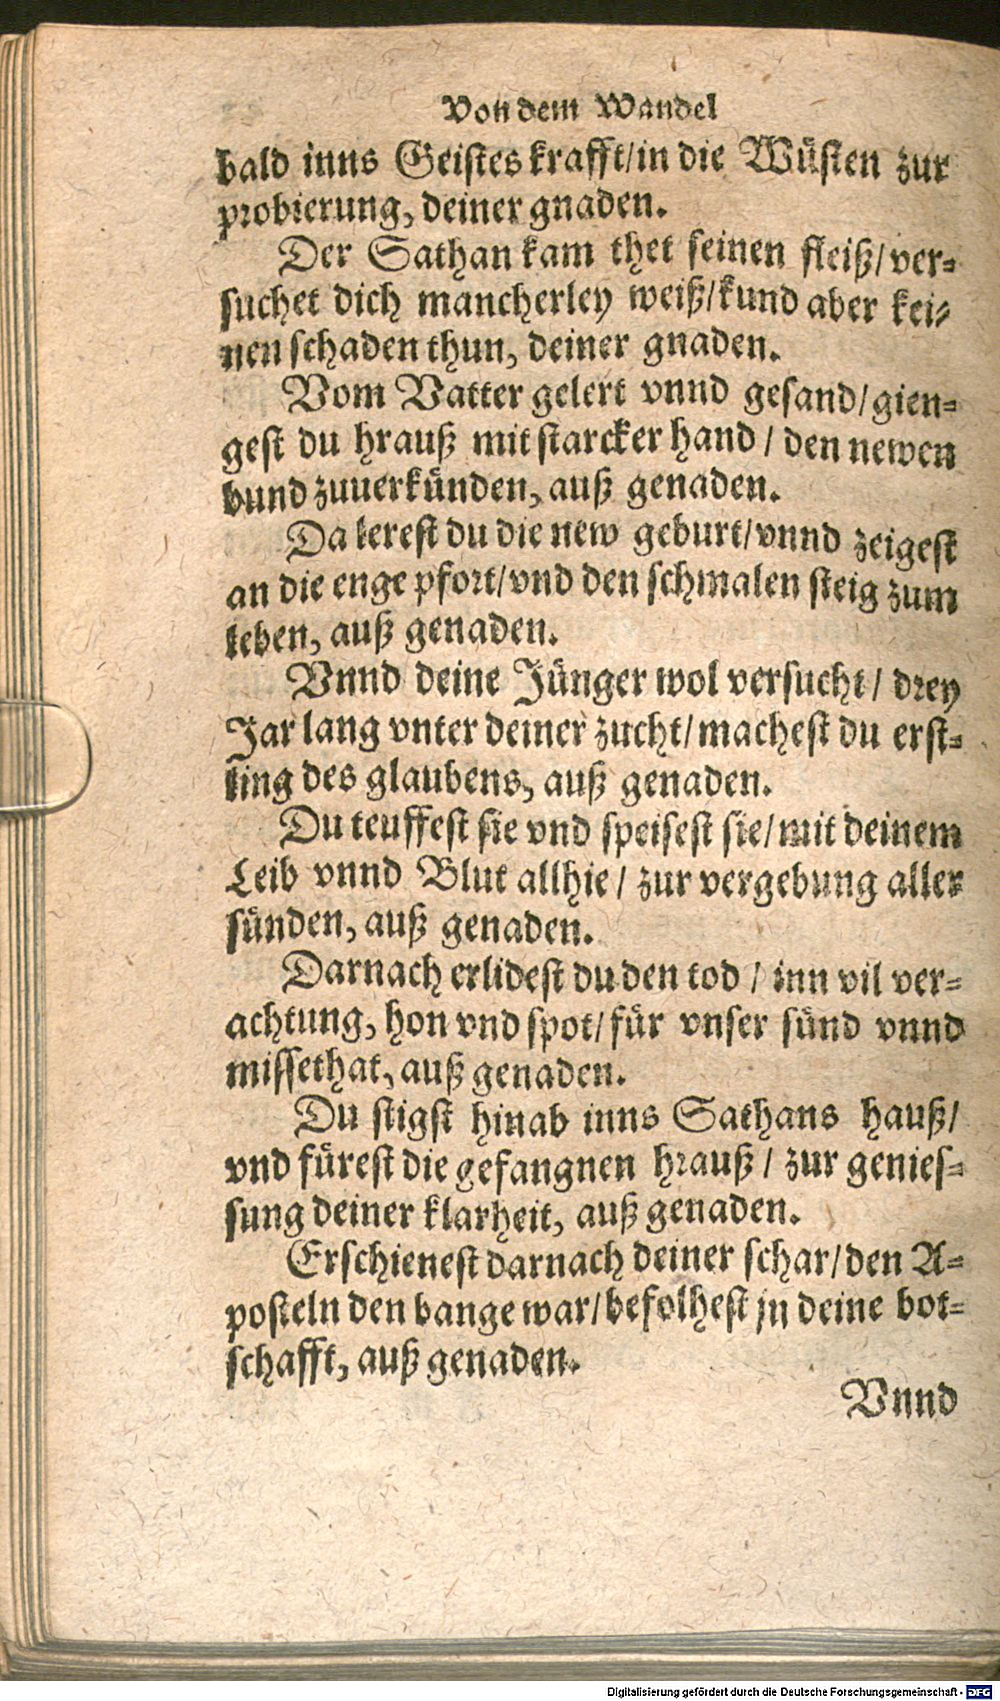 Von dem Wandel
bald inns Geistes krafft/in die Wüsten zur
probierung, deiner gnaden.
Der Sathan kam thet seinen fleiß/ver=
suchet dich mancherley weiß/kund aber kei=
nen schaden thun, deiner gnaden.
Vom Vatter gelert vnnd gesand/gien=
gest du hrauß mit starcker hand / den newen
bund zuuerkünden, auß genaden.
Da lerest du die new geburt/vnnd zeigest
an die enge pfort/vnd den schmalen steig zum
leben, auß genaden.
Vnnd deine Jünger wol versucht / drey
Jar lang vnter deiner zucht/machest du erst=
ling des glaubens, auß genaden.
Du teuffest sie vnd speisest sie/mit deinem
Leib vnnd Blut allhie / zur vergebung aller
sünden, auß genaden.
Darnach erlidest du den tod / inn vil ver=
achtung, hon vnd spot/für vnser sünd vnnd
missethat, auß genaden.
Du stigst hinab inns Sathans hauß/
vnd fürest die gefangnen hrauß / zur genies=
sung deiner klarheit, auß genaden.
Erschienest darnach deiner schar/den A=
posteln den bange war/befolhest jn deine bot=
schafft, auß genaden.
Vnnd
Digitalisierung gefördert durch die Deutsche Forschungsgemeinschaft - DFG